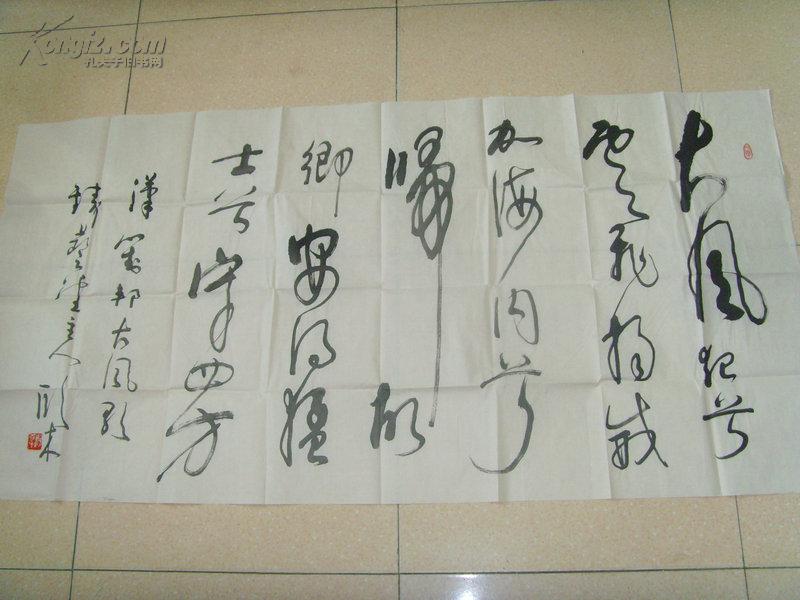 大風起兮
雲飛揚威
加海内兮
歸故
鄉安得猛
士兮守四方
漢劉邦大風歌
堂主人
Kongfz.com
孔夫子旧书网